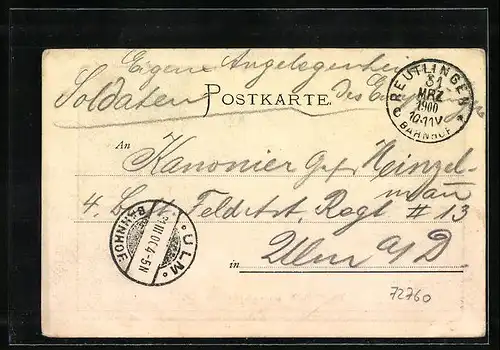 Eigene Angelegenheit
Soldaten des Empfängers
POSTKARTE.
REUTLINGEN
31
MRZ
1900
10-11V
BAHNHOF
An
Kanonier Heinzel-
mann
4. Feldart. Regt # 13
BAHNHOF.
III 4-5N
ULM
in Ulm a/D
72760